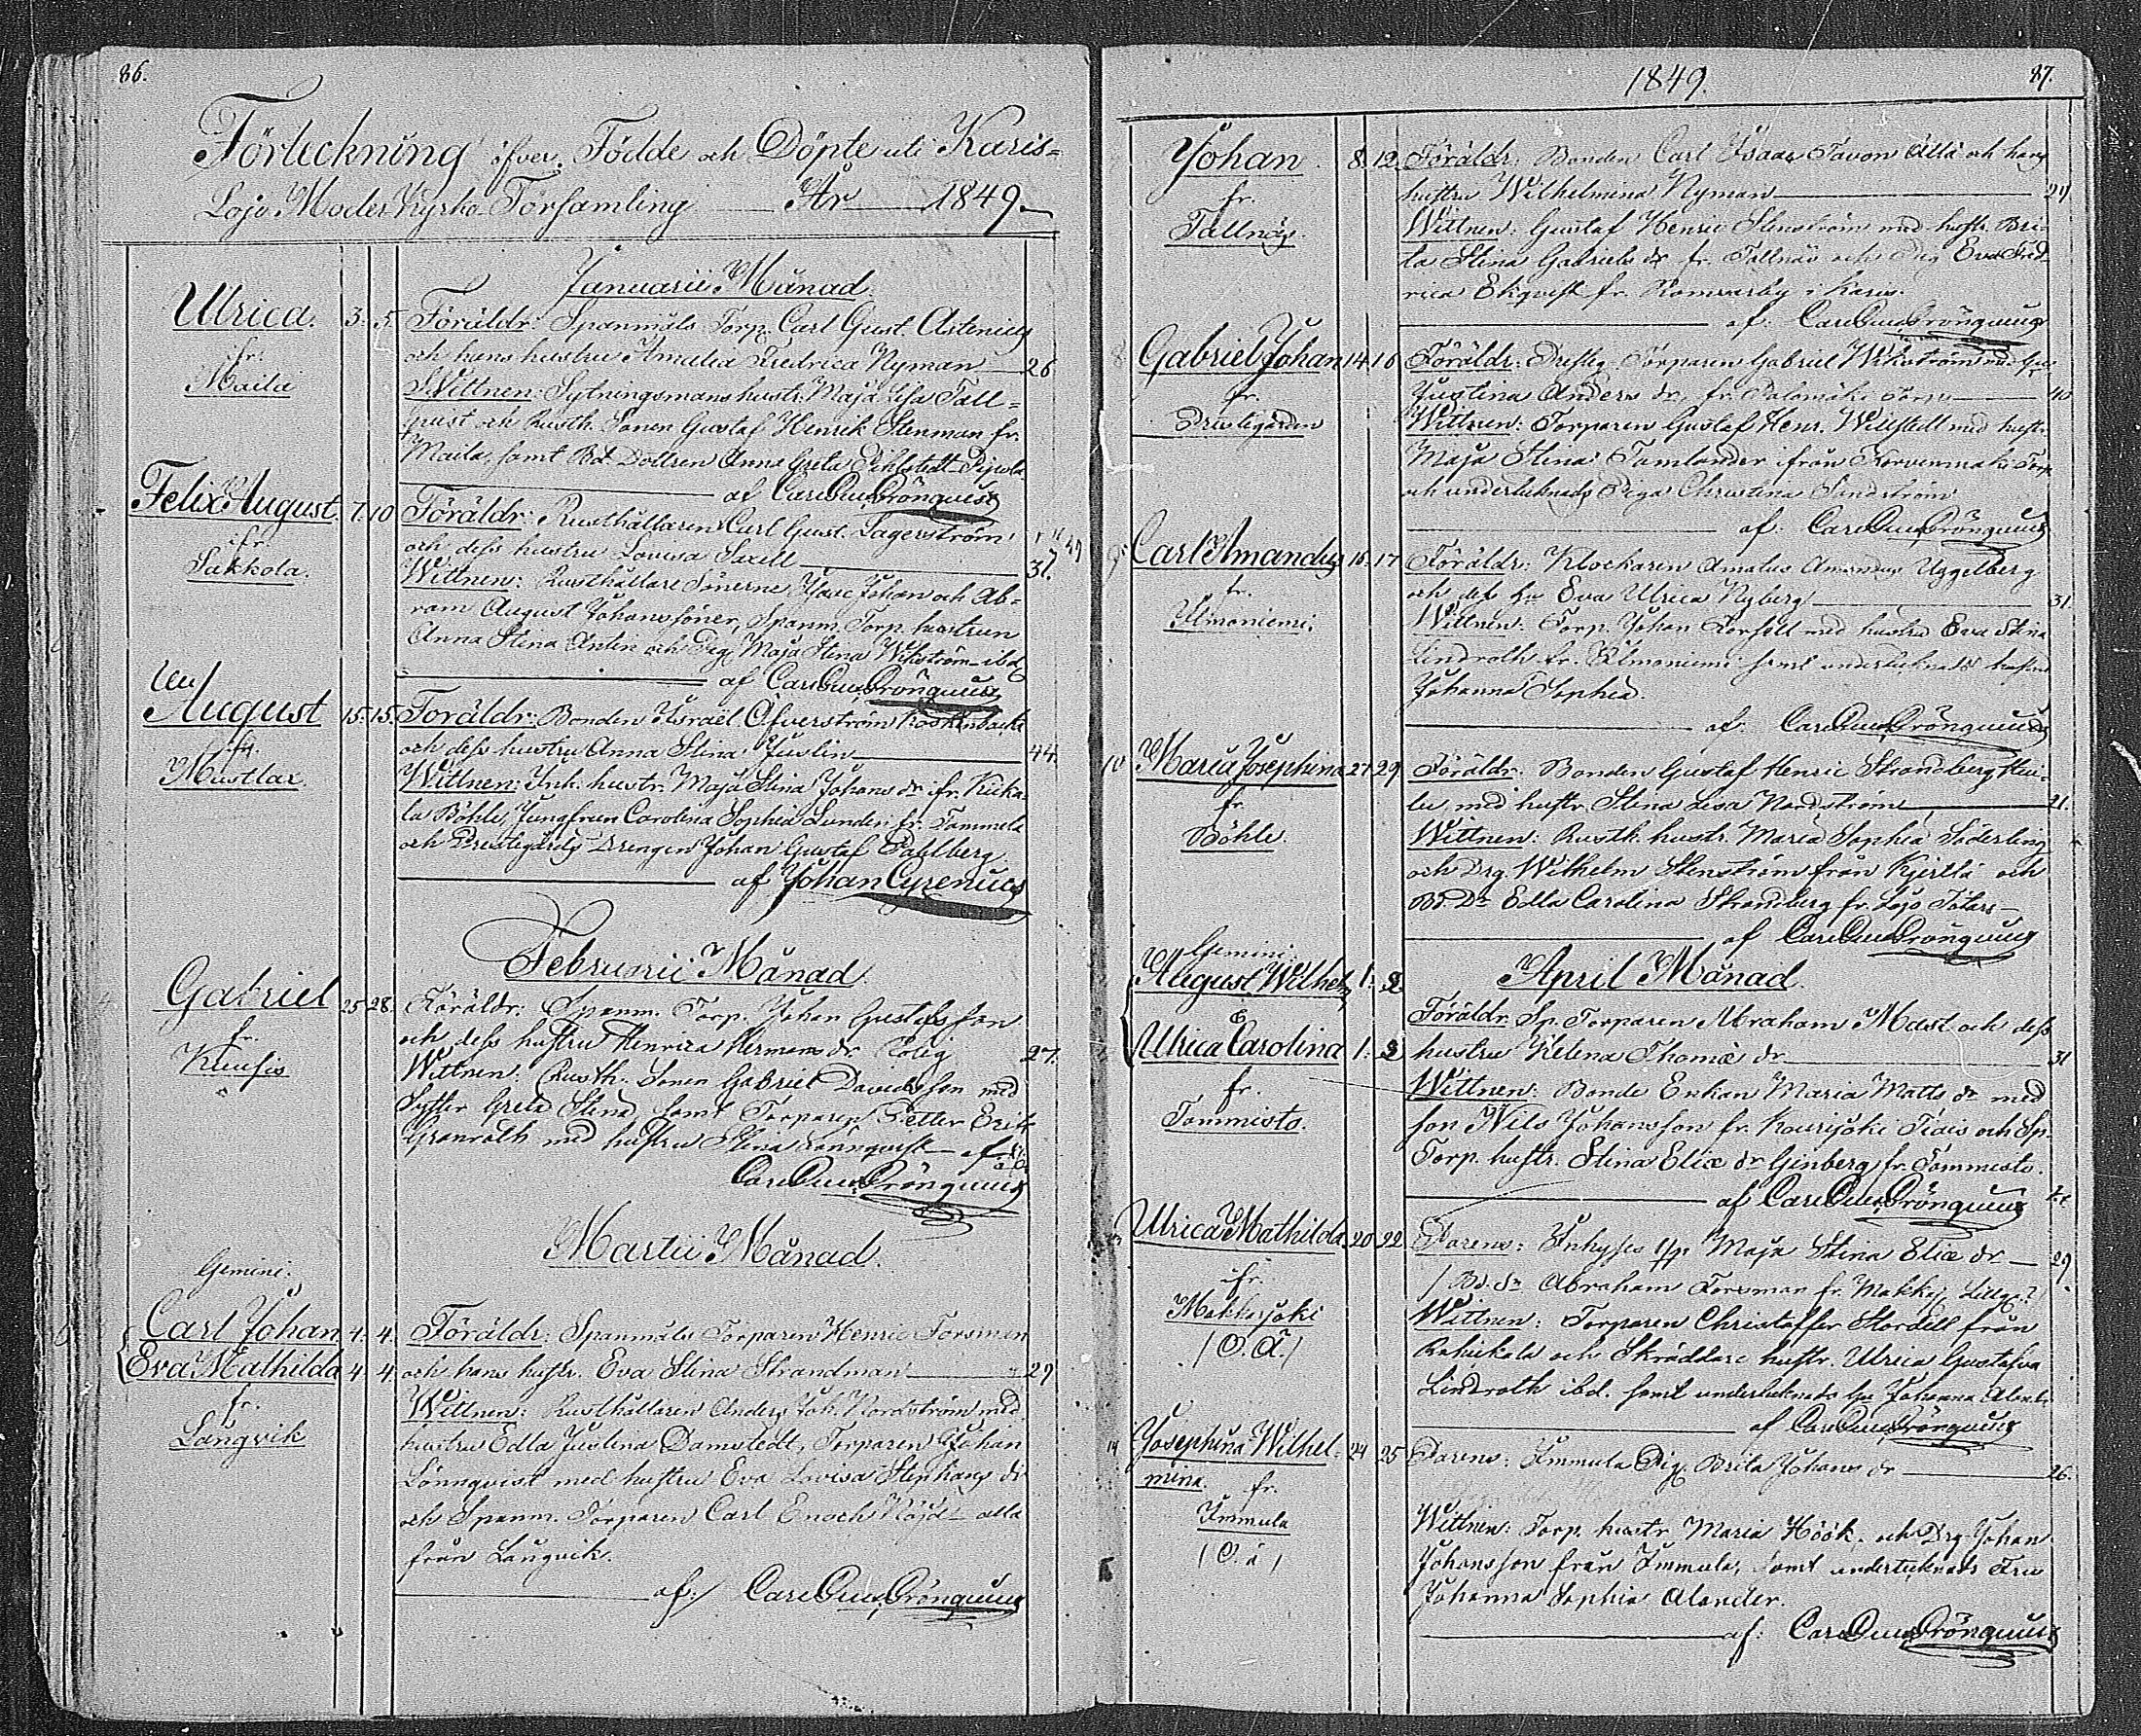 86.
Förteckning öfver Födde och Döpte uti Karis-
Lojo Moder Kyrko Församling År 1849.
Januarii Månad.
Ulrica. 3. 5. Föräldr: Spanmåls Torp. Carl Gust. Astenius
ifr. och hans hustru Amalia Fredrica Nyman 26
Maila Wittnen: Sytningsmans hustr. Maja Lisa Tall=
qvist och Rusth. Sonen Gustaf Henrik Stenman fr.
Maila, samt Bd. Dottren Anna Greta
af Carl Gust. Grönqvist
Felix August. 7. 10 Föräldr: Rusthållaren Carl Gust. Lagerström
ifr. och dess hustru Lovisa Saxell 37.
Sakkola. Wittnen: Rusthållare Sönerne Isaac Johan och Ab=
ram August Johanssöner, Spanm. Torp. hustrun
Anna Stina Antin och Pig. Maja Stina Wikström ibd.
af Carl Gust. Grönqvist
August 15. 15. Föräldr: Bonden Israel Öfverström
ifr. och dess hustru Anna Stina Juslin 44.
Mustlax. Wittnen: Inh. hustr. Maja Stina Johans dr. ifr.
Böhle, Jungfrun Carolina Sophia Lunden fr. Tammela
och Prestegårds Drengen Johan Gustaf Dahlberg
af Johan Cyrenius
Februarii Månad.
Gabriel 25 28. Föräldr: Spanm. Torp. Johan Gustafsson
fr. och dess hustru Henrica Hermans dr. 27.
Kuusia Wittnen: Rusth. Sonen Gabriel Davidsson med
Syster Greta Stina samt Torparen Petter Erik
Granroth med hustru Stina Lönnqvist af
Carl Gust. Grönqvist
Martii Månad.
Gemini.
Carl Johan 4. 4. Föräldr: Spanmåls Torparen Henric Forsman
Eva Mathilda 4. 4. och hans hustr. Eva Stina Strandman 29
fr. Wittnen: Rusthållaren Anders Joh. Nordström med
Långvik hustru Edla Justina Damstedt, Torparen Johan
Lönnqvist med hustru Eva Lovisa Stephans dr
och Spanm. Torparen Carl Enoch Nöjd alla
från Långvik.
af: Carl Gust. Grönqvist
1849. 87.
Johan 8. 12. Föräldr: Bonden Carl Isaac Tavon Ollä och hans
fr. hustru Wilhelmina Nyman 29
Tallnäs. Wittnen: Gustaf Henric Stenström med hustr. Bri-
ta Stina Gabriels dr fr. Tallnäs och Pig. Eva Fred-
rica Ekqvist fr. i Karis.
af: Carl Gust. Grönqvist
Gabriel Johan 14. 16 Föräldr: Torparen Gabriel Wikström med
fr. Justina Anders dr, fr. Palomäki Torp 40
Prestegården Wittnen: Torparen Gustaf Henr. Willstedt med hustr.
Maja Stina Tamlander ifrån Korvenmäki Torp
och undertecknads Piga Christina Sundström
af: Carl Gust. Grönqvist
9. Carl Amandus 16. 17 Föräldr: Klockaren Amatus Amandus Uggelberg
fr. och dess hu Eva Ulrica Nyberg 31.
Ilmoniemi. Wittnen: Torp. Johan Forsell med hustru Eva Stina
Lindroth fr. Ilmoniemi samt undertecknads hustru
Johanna Sophia.
af: Carl Gust. Grönqvist
10 Maria Josephina 27. 29. Föräldr: Bonden Gustaf Henric Strandberg
fr. med hustr. Stina Lisa Nordström 21.
Böhle. Wittnen: Rusth. hustr. Maria Sophia Söderling
och Drg. Wilhelm Stenström från och
Bd. Dr Edla Carolina Strandberg fr. Lojo
af Carl Gust. Grönqvist
Gemini. April Månad.
August Wilhelm 1. 2 Föräldr: Sp. Torparen Abraham Mast och dess
&
Ulrica Carolina 1. 2 hustru Helena Thomæ dr 31
fr. Wittnen: Bonde Enkan Maria Matts dr med
Tommisto. son Nils Johansson fr. Karisjoki och Sp.
Torp. hustr. Stina Eliæ dr Ginberg fr. Tommisto.
af Carl Gust. Grönqvist
Ulrica Mathilda. 20 22. Parens: Inhyses Maja Stina Eliæ dr 29
ifr. Bd. Sn Abraham Forsman fr.
Makkarjoki Wittnen: Torparen Christoffer Stordell från
/O. Ä/ och Skräddare hustr. Ulrica Gustafva
Lindroth ibd. samt undertecknads hu Johanna
af Carl Gust. Grönqvist
14 Josephina Wilhel- 24 25 Parens: Immula Pig. Brita Johans dr 26.
mina. fr.
Immula Wittnen: Torp. hustr Maria Höök och Drg Johan
/O. ä/ Johansson från Immula, samt undertecknads Fru
Johanna Sophia Alander.
af: Carl Gust. Grönqvist